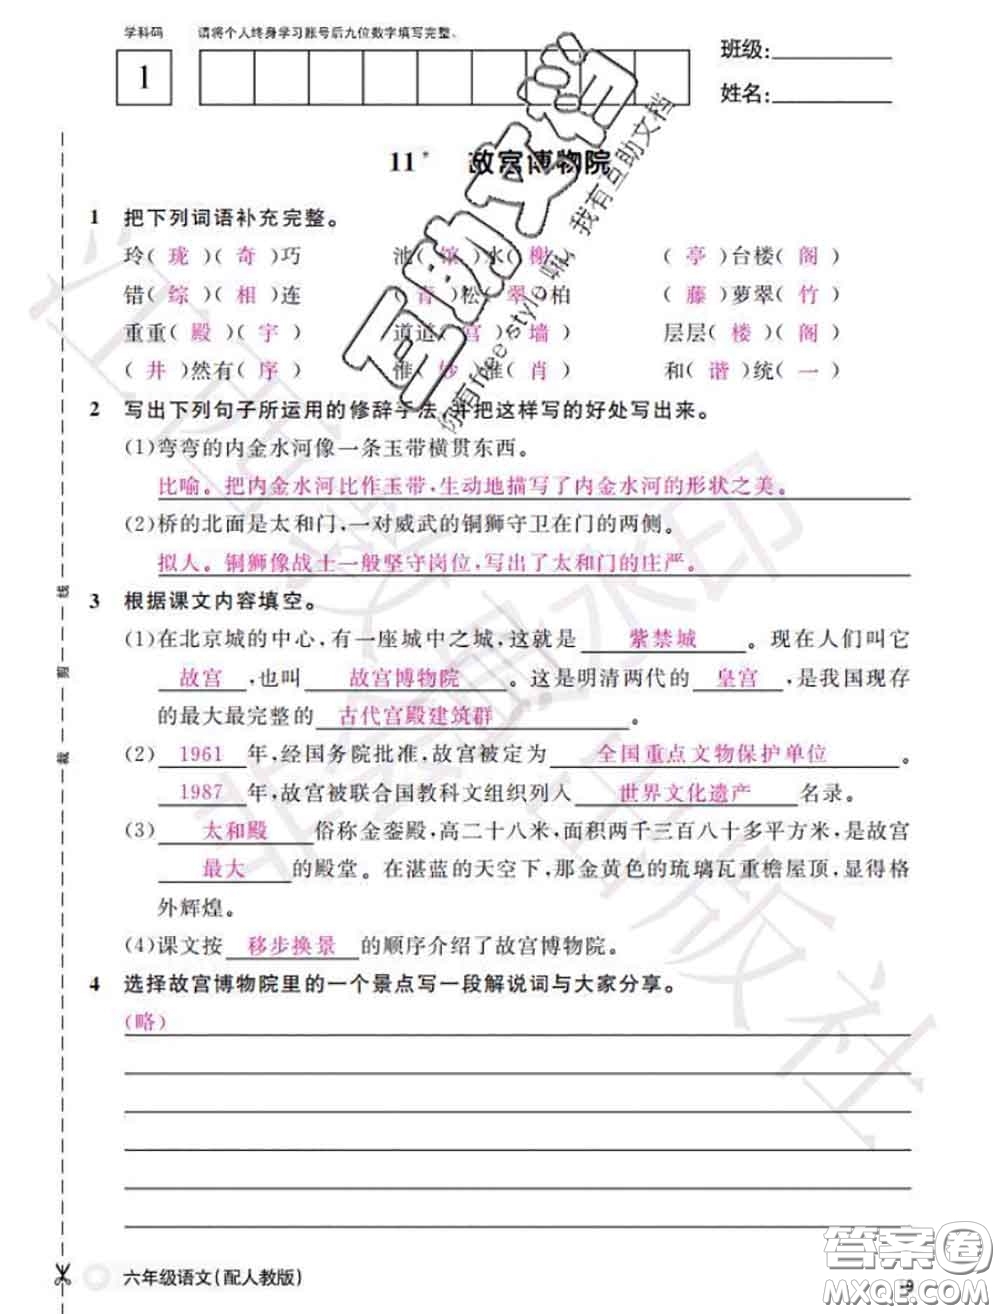 学科码 请将个人终身学习账号后九位数字填写完整。
1
班级:
姓名:
11* 故宫博物院
1 把下列词语补充完整。
玲( 珑 )( 奇 )巧 池( )水( 榭 ) ( 亭 )台楼( 阁 )
错( 综 )( 相 )连 ( 青 )松( 翠 )柏 ( 藤 )萝翠( 竹 )
重重( 殿 )( 宇 ) 道道( 宫 )( 墙 ) 层层( 楼 )( 阁 )
( 井 )然有( 序 ) 惟( 妙 )惟( 肖 ) 和( 谐 )统( 一 )
2 写出下列句子所运用的修辞手法,并把这样写的好处写出来。
(1)弯弯的内金水河像一条玉带横贯东西。
比喻。把内金水河比作玉带,生动地描写了内金水河的形状之美。
(2)桥的北面是太和门,一对威武的铜狮守卫在门的两侧。
拟人。铜狮像战士一般坚守岗位,写出了太和门的庄严。
3 根据课文内容填空。
(1)在北京城的中心,有一座城中之城,这就是 紫禁城 。现在人们叫它
故宫 ,也叫 故宫博物院 。这是明清两代的 皇宫 ,是我国现存
的最大最完整的 古代宫殿建筑群 。
(2) 1961 年,经国务院批准,故宫被定为 全国重点文物保护单位 。
1987 年,故宫被联合国教科文组织列入 世界文化遗产 名录。
(3) 太和殿 俗称金銮殿,高二十八米,面积两千三百八十多平方米,是故宫
最大 的殿堂。在湛蓝的天空下,那金黄色的琉璃瓦重檐屋顶,显得格
外辉煌。
(4)课文按 移步换景 的顺序介绍了故宫博物院。
4 选择故宫博物院里的一个景点写一段解说词与大家分享。
(略)
裁 剪 线
六年级语文(配人教版)
9
互助文档
你有free style吗,我有互助文档
答案卷